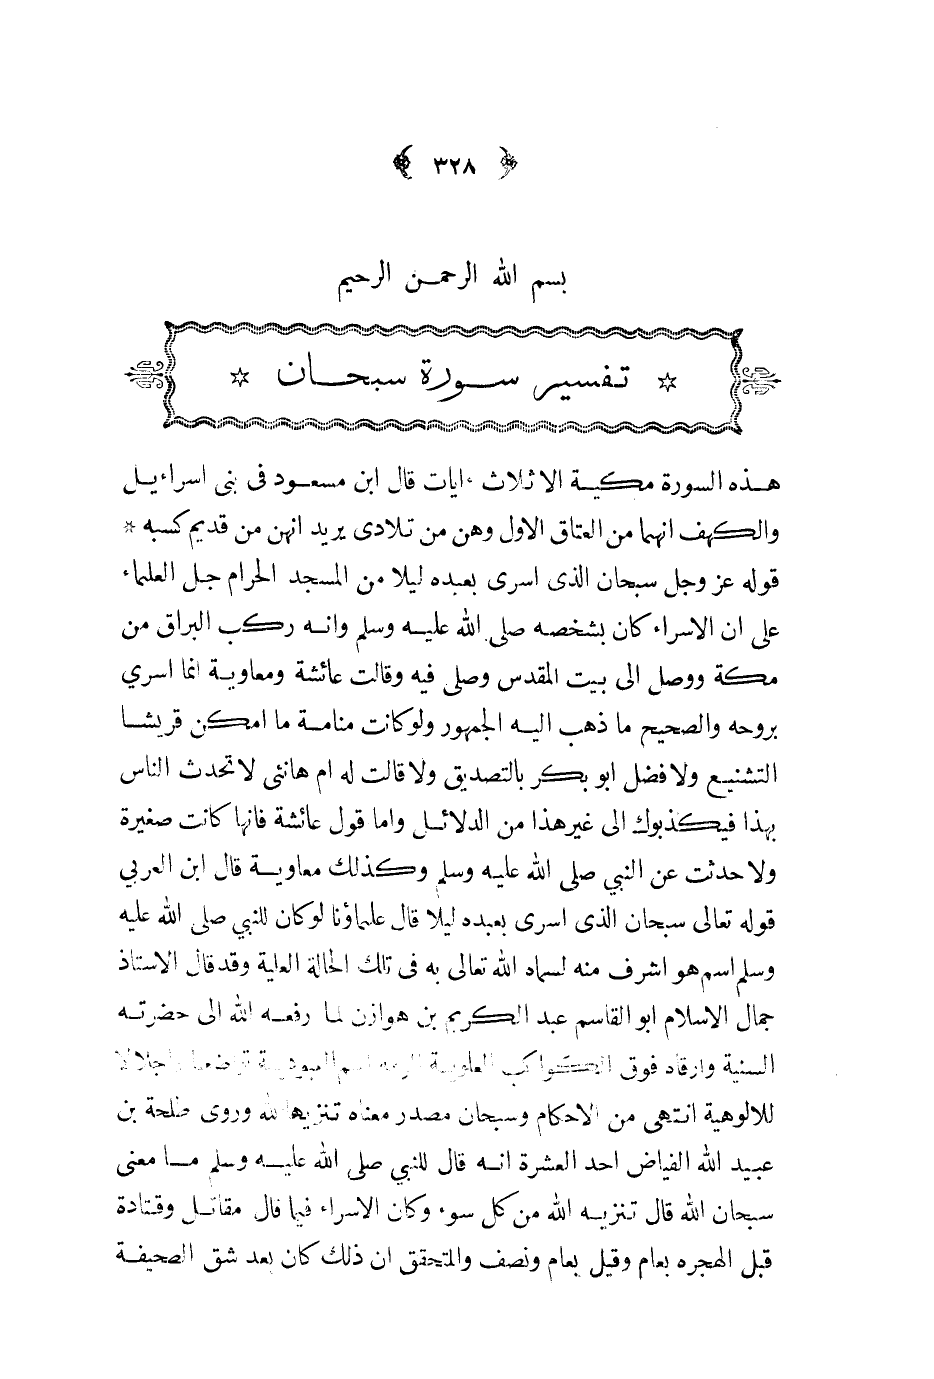 ﴿ ٣٢٨ ﴾
بسم الله الرحمن الرحيم
* تفسير سورة سبحان *
هذه السورة مكية الا ثلاث ءايات قال ابن مسعود فى بنى اسراءيل
والكهف انهما من العتاق الاول وهن من تلادى يريد انهن من قديم كسبه *
قوله عز وجل سبحان الذى اسرى بعبده ليلا من المسجد الحرام جل العلماء
على ان الاسراء كان بشخصه صلى الله عليه وسلم وانه ركب البراق من
مكة ووصل الى بيت المقدس وصلى فيه وقالت عائشة ومعاوية انما اسري
بروحه والصحيح ما ذهب اليه الجمهور ولو كانت منامة ما امكن قريشا
التشنيع ولا فضل ابو بكر بالتصديق ولا قالت له ام هانئى لا تحدث الناس
بهذا فيكذبوك الى غير هذا من الدلائل واما قول عائشة فانها كانت صغيرة
ولا حدثت عن النبي صلى الله عليه وسلم وكذلك معاوية قال ابن العربي
قوله تعالى سبحان الذى اسرى بعبده ليلا قال علماؤنا لو كان للنبي صلى الله عليه
وسلم اسم هو اشرف منه لسماه الله تعالى به فى تلك الحالة العلية وقد قال الاستاذ
جمال الاسلام ابو القاسم عبد الكريم بن هوازن لما رفعه الله الى حضرته
السنية وارقاه فوق الكواكب العلوية الزمه اسم العبودية تواضعا واجلالا
للالوهية انتهى من الاحكام وسبحان مصدر معناه تنزيها لله وروى طلحة بن
عبيد الله الفياض احد العشرة انه قال للنبي صلى الله عليه وسلم ما معنى
سبحان الله قال تنزيه الله من كل سوء وكان الاسراء فيما قال مقاتل وقتادة
قبل الهجره بعام وقيل بعام ونصف والمتحقق ان ذلك كان بعد شق الصحيفة